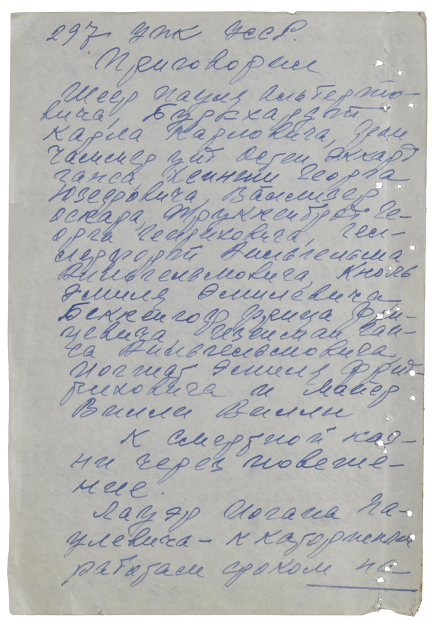 297 УПК УССР.
Приговорил
Шеер Пауля Альберто-
вича, Буркхардт
Карла Карловича, Эгон
Чаммер унд Остен Эккард
Ганса, Хейниш Георга
Юзефовича, Валлизер
Оскара, Труккенброд Ге-
орга Генриховича, Гел-
лерфорт Вильгельма
Вильгельмовича, Кноль
Эмиля Эмилевича
Беккенгоф Фрица Фри-
цевича Изенман Ган-
са Вильгельмовича
Иогшат Эмиля Фрид-
риховича и Майер
Вилли Вилли
К смертной каз-
ни через повеше-
ние.
Лауэр Иогана Па-
улевича - к каторжным
работам сроком на